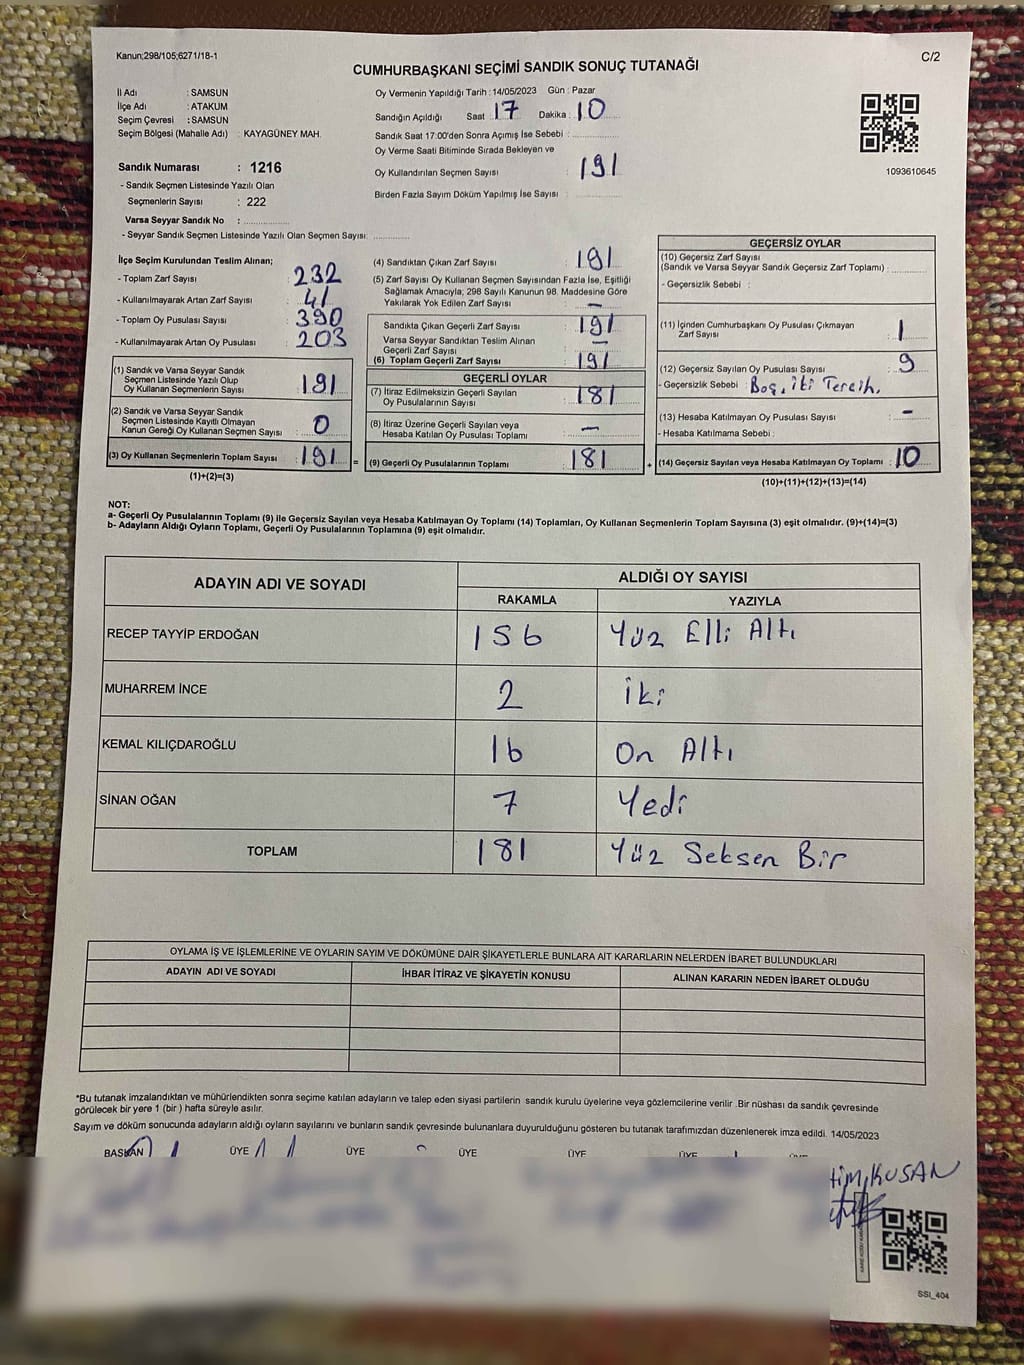 Kanun;298/105;6271/18-1
C/2
CUMHURBAŞKANI SEÇİMİ SANDIK SONUÇ TUTANAĞI
İl Adı : SAMSUN
İlçe Adı : ATAKUM
Seçim Çevresi : SAMSUN
Seçim Bölgesi (Mahalle Adı) : KAYAGÜNEY MAH.
Oy Vermenin Yapıldığı Tarih : 14/05/2023 Gün : Pazar
Sandığın Açıldığı Saat : 17 Dakika : 10
Sandık Saat 17:00'den Sonra Açımış İse Sebebi :
Oy Verme Saati Bitiminde Sırada Bekleyen ve
Oy Kullandırılan Seçmen Sayısı : 191
Birden Fazla Sayım Döküm Yapılmış İse Sayısı :
1093610645
Sandık Numarası : 1216
- Sandık Seçmen Listesinde Yazılı Olan
Seçmenlerin Sayısı : 222
Varsa Seyyar Sandık No :
- Seyyar Sandık Seçmen Listesinde Yazılı Olan Seçmen Sayısı:
İlçe Seçim Kurulundan Teslim Alınan;
- Toplam Zarf Sayısı : 232
- Kullanılmayarak Artan Zarf Sayısı : 41
- Toplam Oy Pusulası Sayısı : 390
- Kullanılmayarak Artan Oy Pusulası : 203
(1) Sandık ve Varsa Seyyar Sandık
Seçmen Listesinde Yazılı Olup
Oy Kullanan Seçmenlerin Sayısı : 191
(2) Sandık ve Varsa Seyyar Sandık
Seçmen Listesinde Kayıtlı Olmayan
Kanun Gereği Oy Kullanan Seçmen Sayısı : 0
(3) Oy Kullanan Seçmenlerin Toplam Sayısı : 191 =
(1)+(2)=(3)
(4) Sandıktan Çıkan Zarf Sayısı : 191
(5) Zarf Sayısı Oy Kullanan Seçmen Sayısından Fazla İse, Eşitliği
Sağlamak Amacıyla; 298 Sayılı Kanunun 98. Maddesine Göre
Yakılarak Yok Edilen Zarf Sayısı : —
Sandıkta Çıkan Geçerli Zarf Sayısı : 191
Varsa Seyyar Sandıktan Teslim Alınan
Geçerli Zarf Sayısı : —
(6) Toplam Geçerli Zarf Sayısı : 191
GEÇERLİ OYLAR
(7) İtiraz Edilmeksizin Geçerli Sayılan
Oy Pusulalarının Sayısı : 181
(8) İtiraz Üzerine Geçerli Sayılan veya
Hesaba Katılan Oy Pusulası Toplamı : —
(9) Geçerli Oy Pusulalarının Toplamı : 181 +
GEÇERSİZ OYLAR
(10) Geçersiz Zarf Sayısı
(Sandık ve Varsa Seyyar Sandık Geçersiz Zarf Toplamı) :
- Geçersizlik Sebebi :
(11) İçinden Cumhurbaşkanı Oy Pusulası Çıkmayan
Zarf Sayısı : 1
(12) Geçersiz Sayılan Oy Pusulası Sayısı : 9
- Geçersizlik Sebebi : Boş, iki Tercih.
(13) Hesaba Katılmayan Oy Pusulası Sayısı : -
- Hesaba Katılmama Sebebi :
(14) Geçersiz Sayılan veya Hesaba Katılmayan Oy Toplamı : 10
(10)+(11)+(12)+(13)=(14)
NOT:
a- Geçerli Oy Pusulalarının Toplamı (9) ile Geçersiz Sayılan veya Hesaba Katılmayan Oy Toplamı (14) Toplamları, Oy Kullanan Seçmenlerin Toplam Sayısına (3) eşit olmalıdır. (9)+(14)=(3)
b- Adayların Aldığı Oyların Toplamı, Geçerli Oy Pusulalarının Toplamına (9) eşit olmalıdır.
ADAYIN ADI VE SOYADI
ALDIĞI OY SAYISI
RAKAMLA YAZIYLA
RECEP TAYYİP ERDOĞAN 156 Yüz Elli Altı
MUHARREM İNCE 2 iki
KEMAL KILIÇDAROĞLU 16 On Altı
SİNAN OĞAN 7 Yedi
TOPLAM 181 Yüz Seksen Bir
OYLAMA İŞ VE İŞLEMLERİNE VE OYLARIN SAYIM VE DÖKÜMÜNE DAİR ŞİKAYETLERLE BUNLARA AİT KARARLARIN NELERDEN İBARET BULUNDUKLARI
ADAYIN ADI VE SOYADI İHBAR İTİRAZ VE ŞİKAYETİN KONUSU ALINAN KARARIN NEDEN İBARET OLDUĞU
*Bu tutanak imzalandıktan ve mühürlendikten sonra seçime katılan adayların ve talep eden siyasi partilerin sandık kurulu üyelerine veya gözlemcilerine verilir .Bir nüshası da sandık çevresinde
görülecek bir yere 1 (bir ) hafta süreyle asılır.
Sayım ve döküm sonucunda adayların aldığı oyların sayılarını ve bunların sandık çevresinde bulunanlara duyurulduğunu gösteren bu tutanak tarafımızdan düzenlenerek imza edildi. 14/05/2023
BAŞKAN ÜYE ÜYE ÜYE ÜYE ÜYE
KUSAN
SSI_404